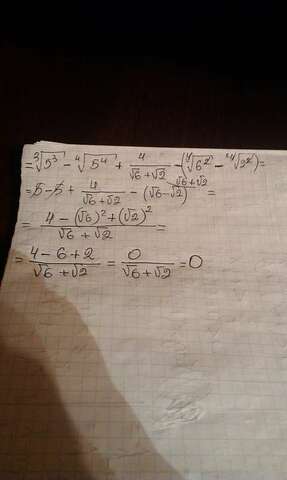 = ∛5³ - ∜5⁴ + 4/(√6+√2) - (∜6² - ∜2²) =
= 5 - 5 + 4/(√6+√2) - (√6-√2)^(√6+√2) =
= (4 - (√6)² + (√2)²)/(√6+√2) =
= (4 - 6 + 2)/(√6+√2) = 0/(√6+√2) = 0